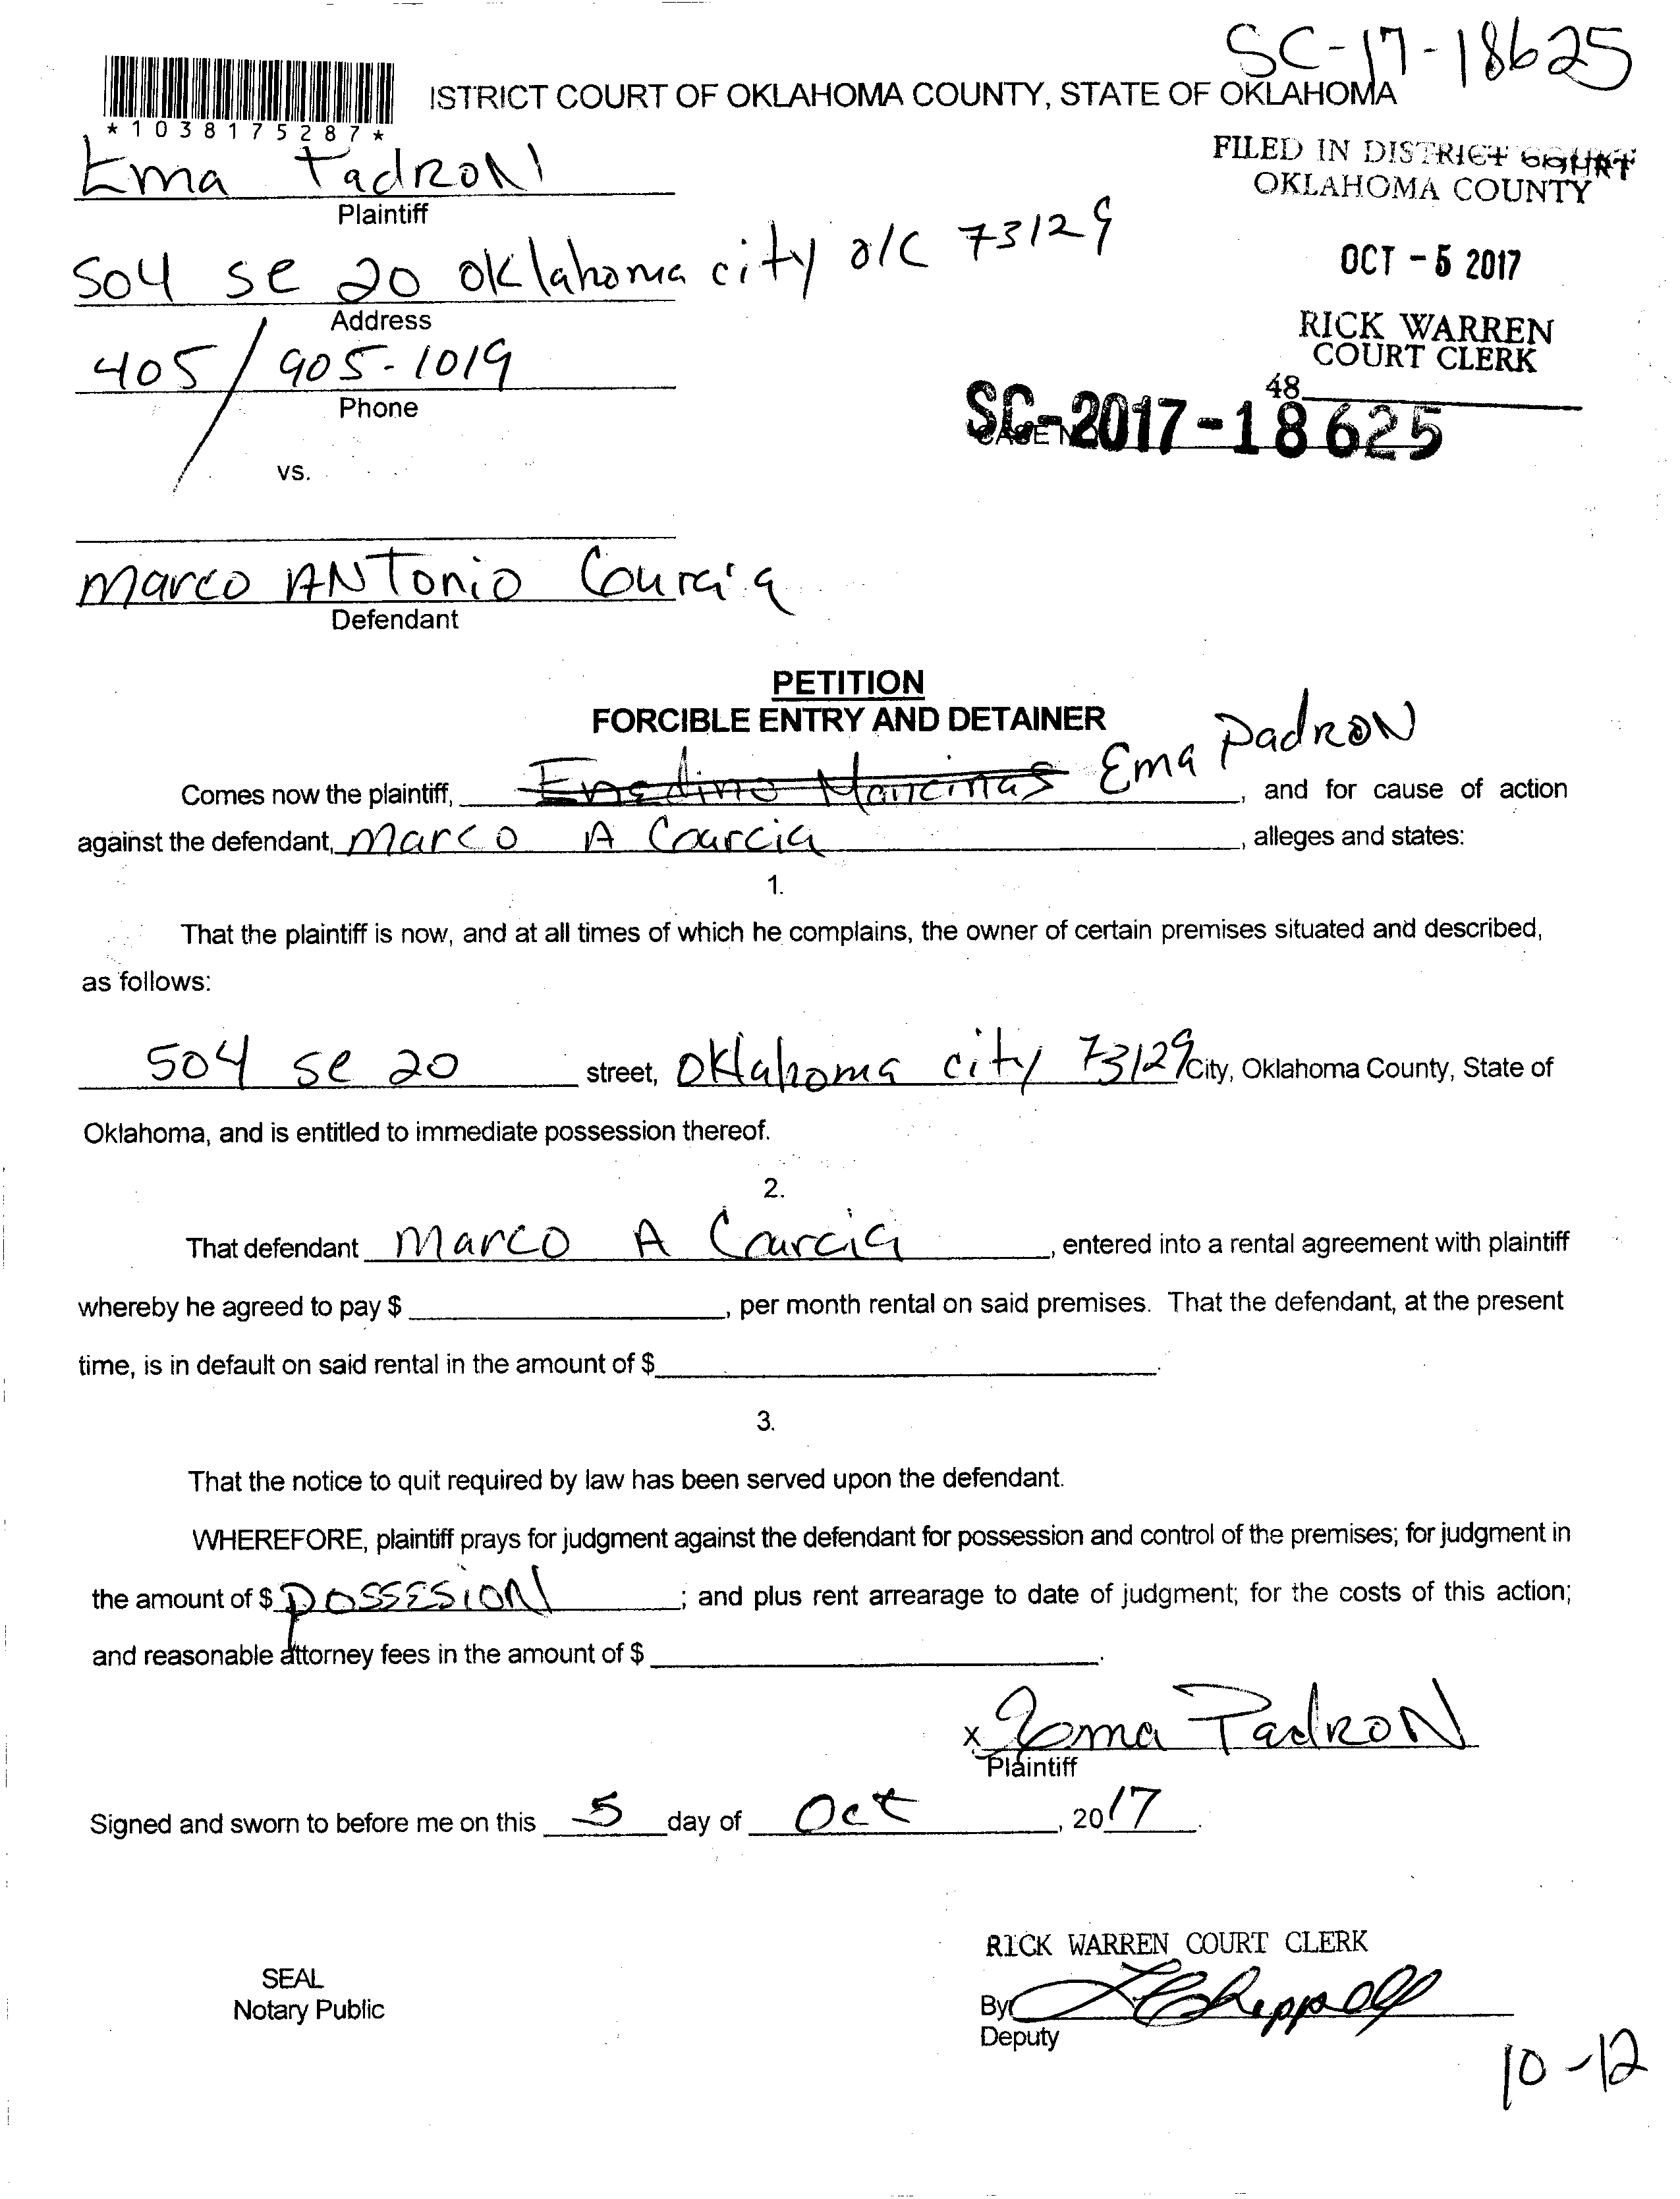 SC-17-18625
ISTRICT COURT OF OKLAHOMA COUNTY, STATE OF OKLAHOMA
*1038175287*
FILED IN DISTRICT COURT
OKLAHOMA COUNTY
Ema Padron
Plaintiff
504 se 20 oklahoma city o/c 73129
OCT - 5 2017
Address
RICK WARREN
COURT CLERK
405/905-1019
48
Phone
SC-2017-18625
CASE N
vs.
Marco ANTonio Gaurcia
Defendant
PETITION
FORCIBLE ENTRY AND DETAINER
Comes now the plaintiff, Enedino Mancinas Ema Padron, and for cause of action
against the defendant, Marco A Gaurcia, alleges and states:
1.
That the plaintiff is now, and at all times of which he complains, the owner of certain premises situated and described,
as follows:
504 se 20 street, Oklahoma city 73129 City, Oklahoma County, State of
Oklahoma, and is entitled to immediate possession thereof.
2.
That defendant Marco A Gaurcia, entered into a rental agreement with plaintiff
whereby he agreed to pay $, per month rental on said premises. That the defendant, at the present
time, is in default on said rental in the amount of $.
3.
That the notice to quit required by law has been served upon the defendant.
WHEREFORE, plaintiff prays for judgment against the defendant for possession and control of the premises; for judgment in
the amount of $ possesion; and plus rent arrearage to date of judgment; for the costs of this action;
and reasonable attorney fees in the amount of $.
x Ema Padron
Plaintiff
Signed and sworn to before me on this 5 day of Oct, 2017.
RICK WARREN COURT CLERK
SEAL
Notary Public
By
Deputy
10-12